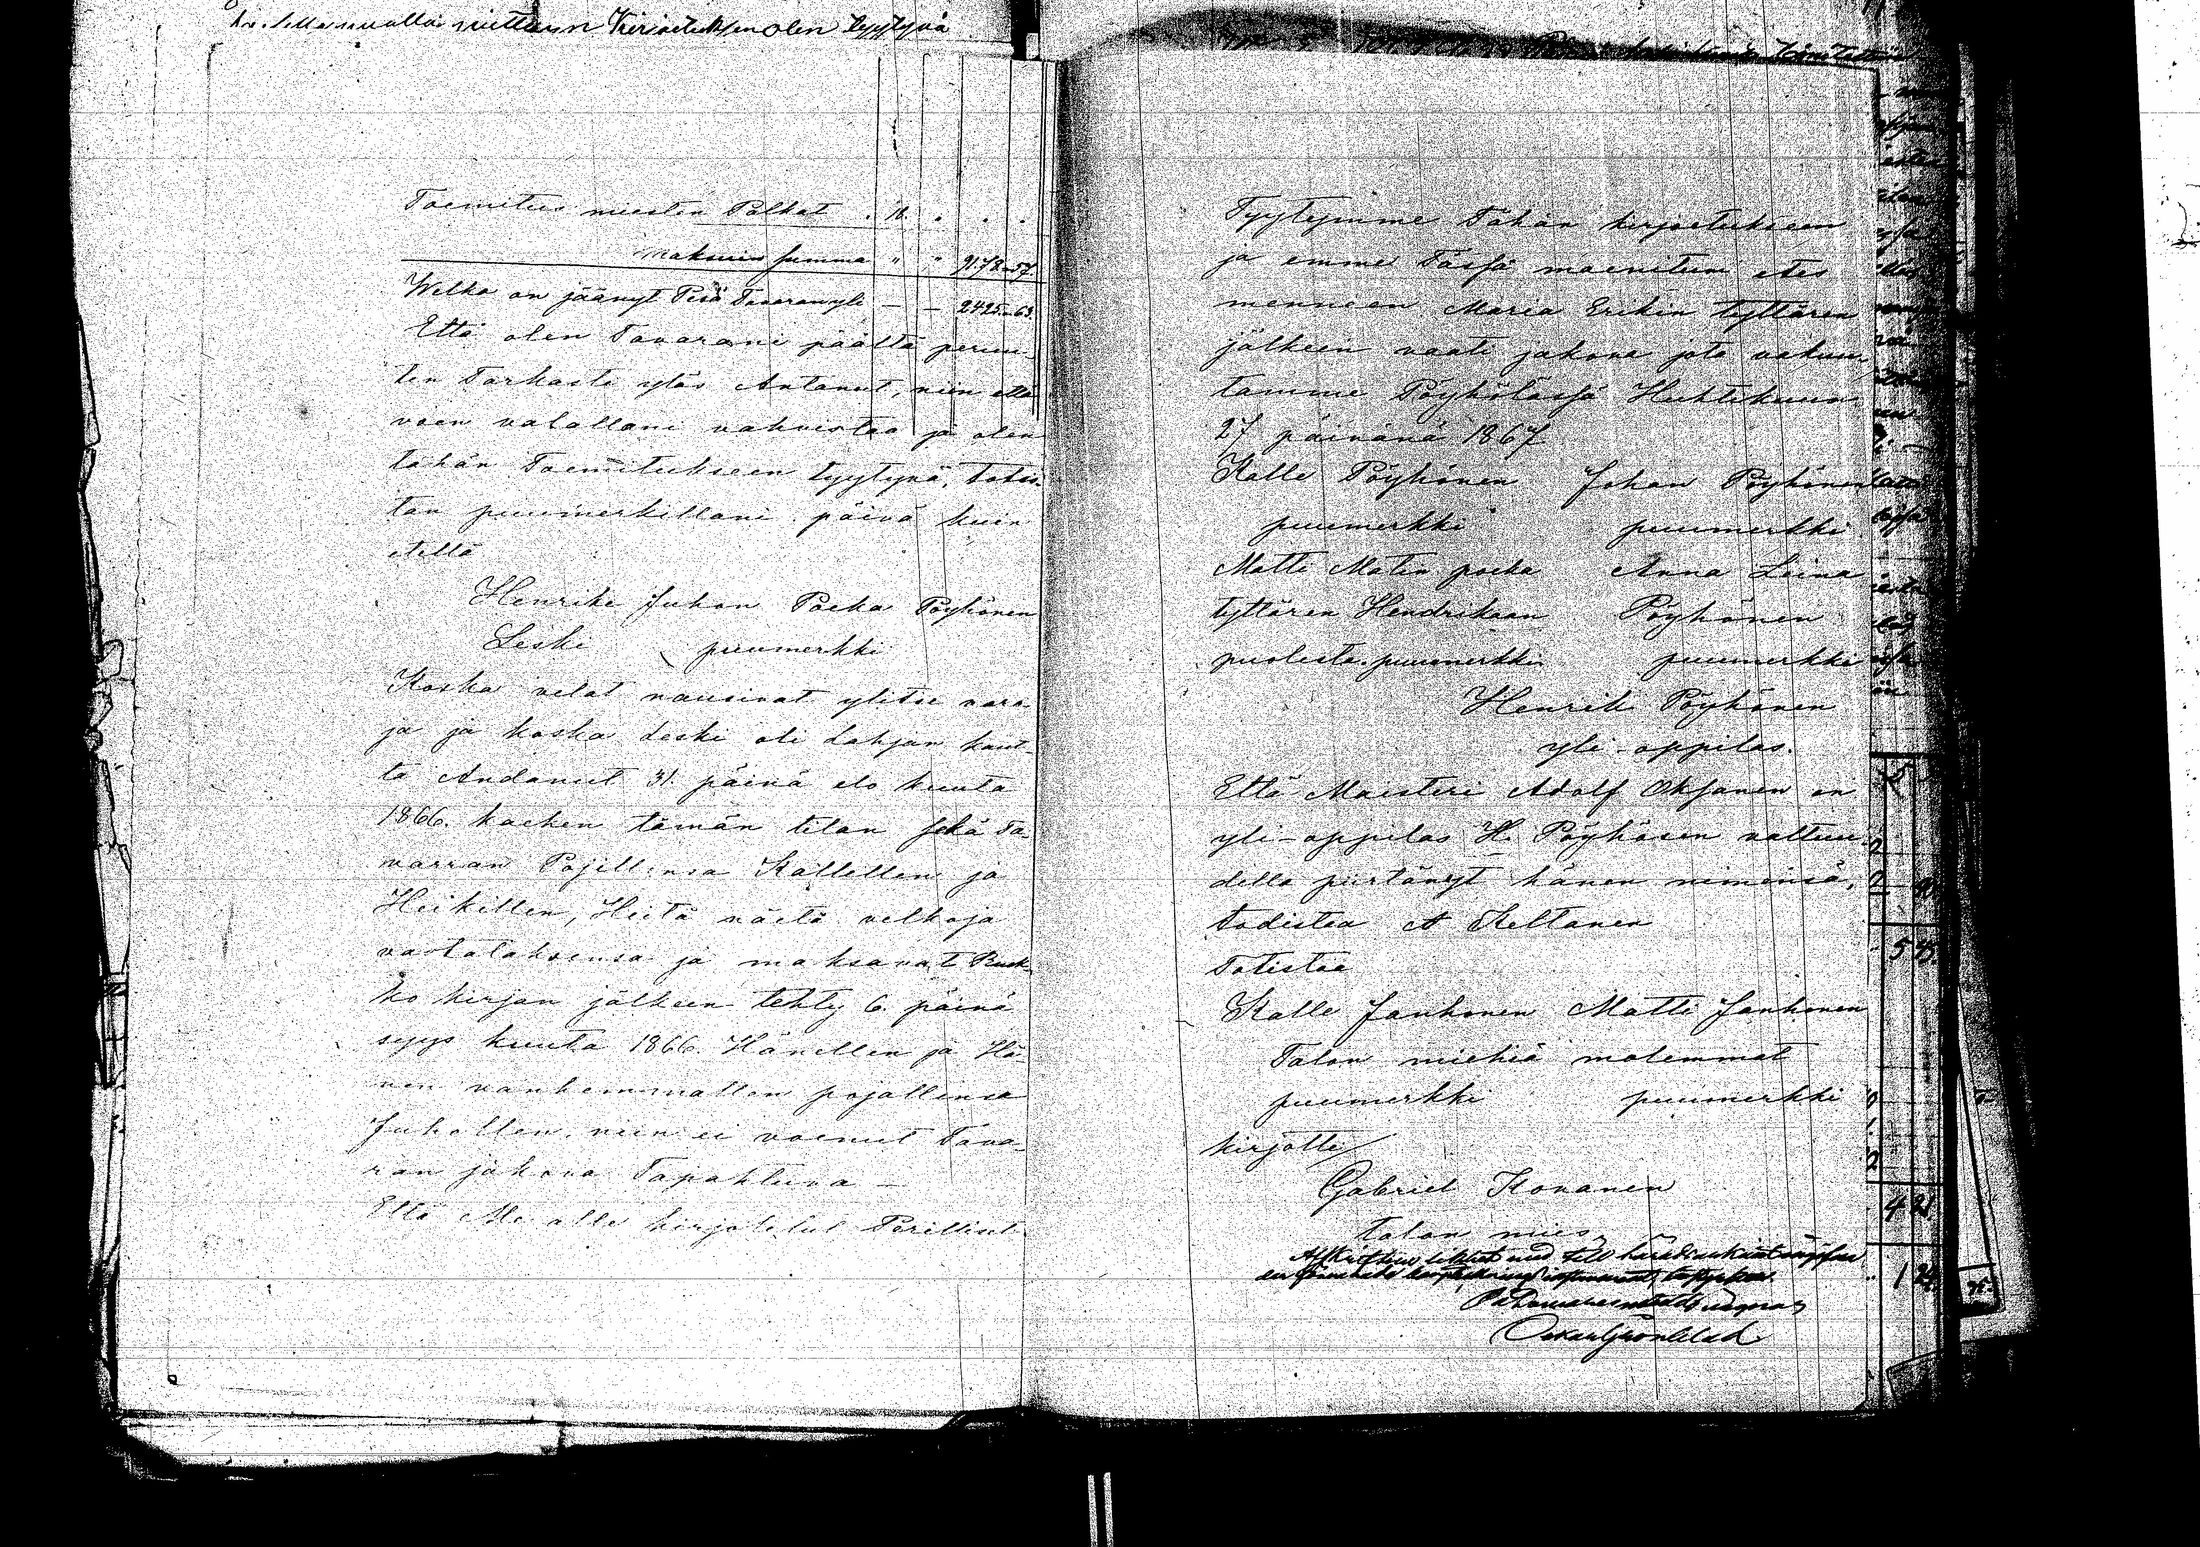 nittuun Kirjoituksen olen tyytyvä
Toemitus miesten Palkat . 10 . . .
maksuin summa " " 9178 57.
Welka on jäänyt Pesä Tavaran yli — — 2425 63.
Että olen Tavarani päältä peruu-
ten Tarkasti ylös Antanut, niin että
voen valallani vahvistaa ja olen
tähän Toemitukseen tyytyvä, totis-
tan puumerkilläni päivä kuin
etellä
Henrika Juhon Poeka Pöyhönen
Leski puumerkki
Koska velat nausivat ylitse varo-
ja ja koska Leski oli Lahjan kaut-
ta Andanut 31. päivä elo kuuta
1866. kaeken tämän tilan sekä Ta-
varran Pojillensa Kallellen ja
Heikillen, Heitä näitä velkoja
vastataksensa ja maksavat Ruok-
ko kirjan jälkeen tehty 6. päivä
syys kuuta 1866. Hänellen ja Hä-
nen vanhemmallen pojallensa
Juhollen, niin ei voenut Tava-
ran jakova Tapahtuva —
Että Me alle kirjotetut Perilliset
Tyytymme Tähän kirjoitukseen
ja emme Tässä maenitun etes
menneen Maria Erikin tyttären
jälkeen vaati jakova jota vakuu-
tamme Pöyhölässä Huhtikuun
27 päivänä 1867
Kalle Pöyhönen Johan Pöyhönen
puumerkki puumerkki
Matti Matin poeka Anna Liina
tyttären Hendrikaan Pöyhönen
puolesta puumerkki puumerkki
Henrik Pöyhönen
yli-oppilas.
Että Maisteri Adolf Oksanen on
yli-oppilas H. Pöyhösen valtuu-
della piirtänyt hänen nimensä,
todistaa A Keltanen
Totistaa
Kalle Janhonen Matti Janhonen
Talon miehiä molemmat
puumerkki puumerkki
kirjotti
Gabriel Kovanen
talon mies
Oskar Grönblad